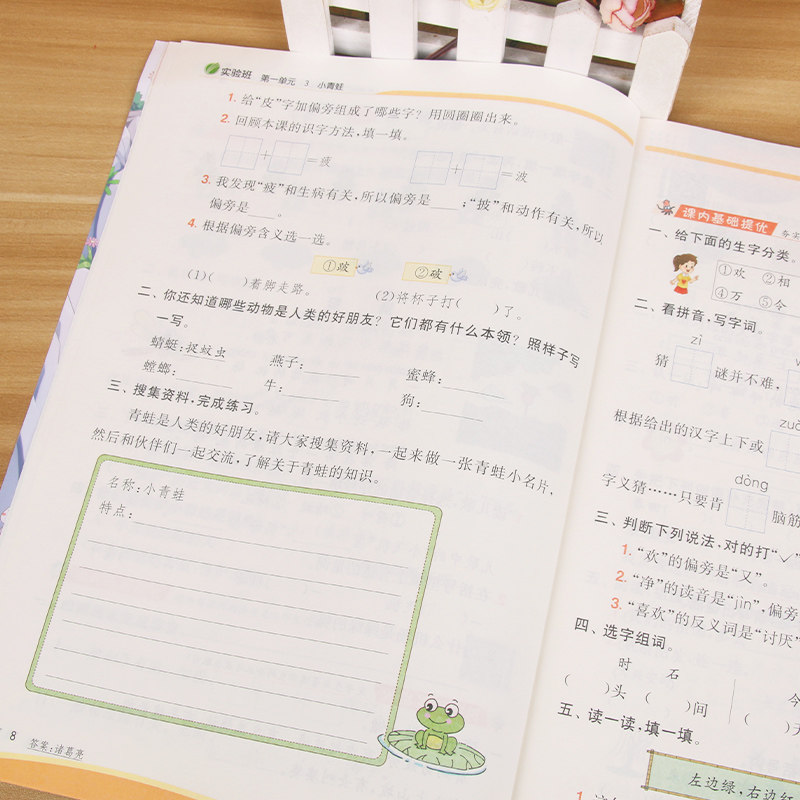 实验班 第一单元 3 小青蛙
1. 给“皮”字加偏旁组成了哪些字？用圆圈圈出来。
2. 回顾本课的识字方法，填一填。
+ =疲 + =波
3. 我发现“疲”和生病有关，所以偏旁是____；“披”和动作有关，所以
偏旁是____。
4. 根据偏旁含义选一选。
①跛 ②破
(1)( )着脚走路。 (2)将杯子打( )了。
二、你还知道哪些动物是人类的好朋友？它们都有什么本领？照样子写
一写。
蜻蜓:捉蚊虫 燕子:________ 蜜蜂:________
螳螂:________ 牛:________ 狗:________
三、搜集资料，完成练习。
青蛙是人类的好朋友，请大家搜集资料，一起来做一张青蛙小名片，
然后和伙伴们一起交流，了解关于青蛙的知识。
名称:小青蛙
特点:
8 答案:诸葛亮
课内基础提优
一、给下面的生字分类。
①欢 ②相
④万 ⑤令
二、看拼音，写字词。
zì
猜 谜并不难，
根据给出的汉字上下或
dòng
字义猜……只要肯 脑筋
三、判断下列说法，对的打“✓”
1. “欢”的偏旁是“又”。
2. “净”的读音是“jìn”，偏旁
3. “喜欢”的反义词是“讨厌”
四、选字组词。
时 石 今
( )头 ( )间 ( )天
五、读一读，填一填。
左边绿，右边红